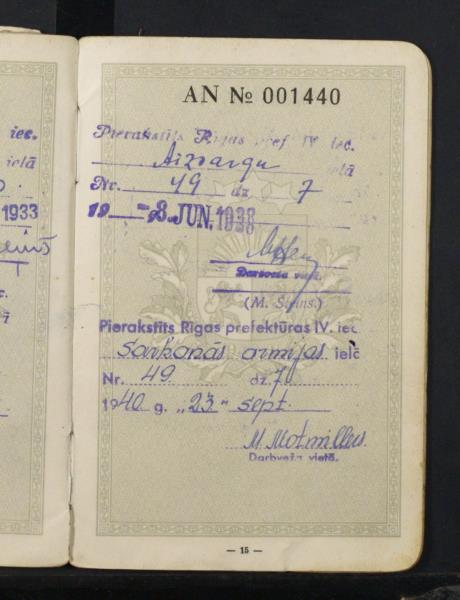 iec.
ielā
1933
AN № 001440
Pierakstīts Rīgas pref. IV iec.
Aizsargu ielā
Nr. 49 dz 7
19 -8. JUN. 1938
Darbveža vietā.
Pierakstīts Rīgas prefektūras IV. iec.
Sarkanās armijas ielā
Nr. 49. dz. 7
1940 g. „23" sept.
Darbveža vietā.
— 15 —